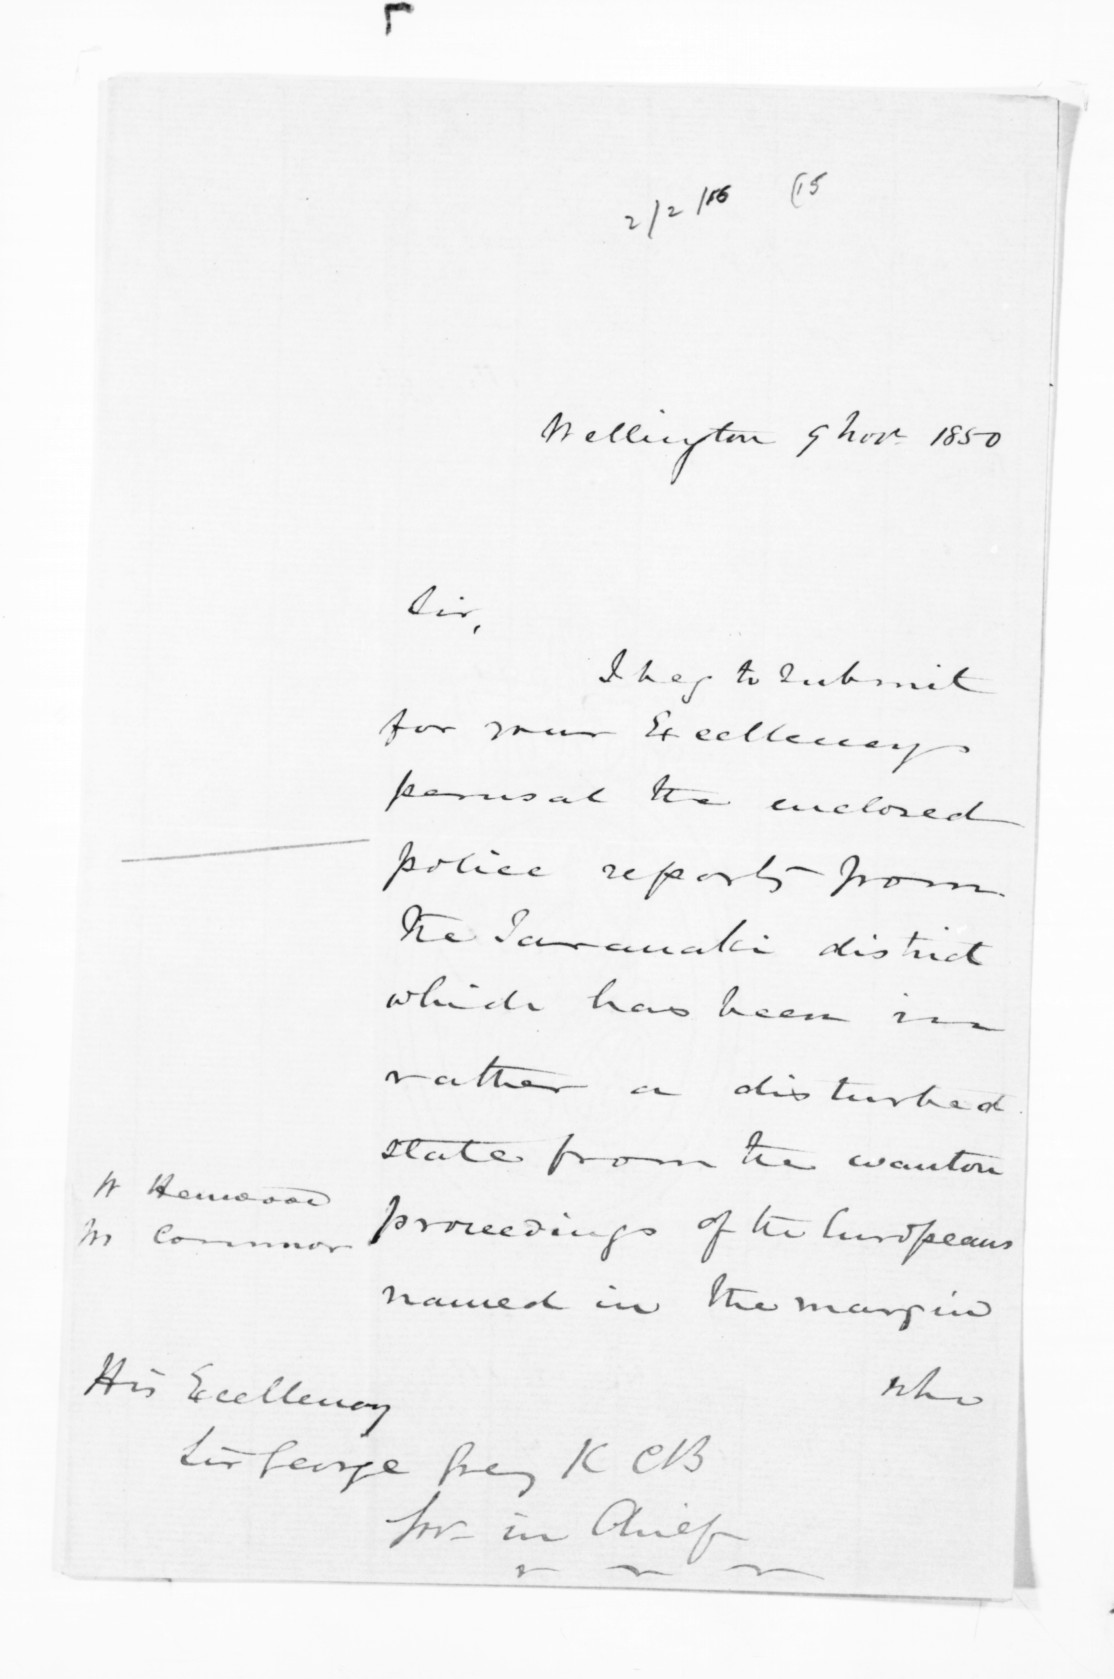 2/2/16 (15
Wellington 9 Novr 1850
Sir,
I beg to submit
for your Excellencys
perusal the enclosed
police reports from
the Taranaki district
which has been in
rather a disturbed
state from the wanton
proceedings of the Europeans
named in the margin
W Henwood
M Connor
who
His Excellency
Sir George Grey K C B
Govr in Chief